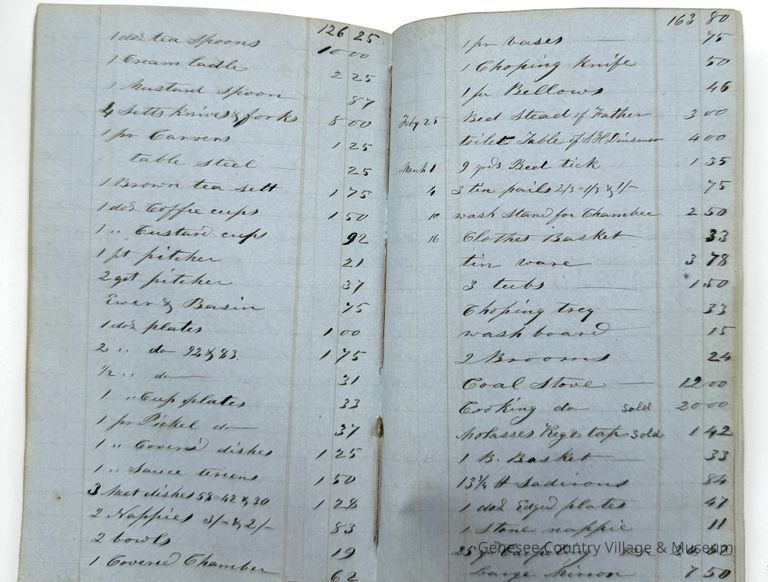 126 25
1 doz tea Spoons 10 00
1 Cream ladle 2 25
1 Mustard Spoon 87
4 Setts knives & forks 8 00
1 pr Carvers 1 25
table Steel 25
1 Brown tea sett 1 75
1 doz Coffie cups 1 50
1 " Custard cups 92
1 pt pitcher 21
2 qt pitcher 37
Ewer & Basin 75
1 doz plates 1 00
2 " do 92 & 83 1 75
1/2 " do 31
1 " Cup plates 33
1 pr Pickel do 37
1 " Coverd dishes 1 25
1 " Sauce tureens 1 50
3 Meet dishes 58-42 & 30 1 28
2 Nappies 3/- & 2/- 83
2 bowls 19
1 Covered Chamber 62
163 80
1 pr vases 75
1 Choping Knife 50
1 pr Bellows 46
Feby 25 Bed Stead of Father 3 00
toilet Table of 4 00
March 1 9 yds Bed tick 1 35
4 3 tin pails 75
10 wash Stand for Chamber 2 50
16 Clothes Basket 33
tin ware 3 78
3 tubs 1 50
Choping trey 33
wash board 15
2 Brooms 24
Coal Stove 12 00
Cooking do sold 20 00
Molasses Keg & tap sold 1 42
1 B. Basket 33
13 3/4 # Sadirons 84
1 doz Edged plates 47
1 Stone nappie 11
25 yd Carpeting
Large Mirror 7 50
Genesee Country Village & Museum